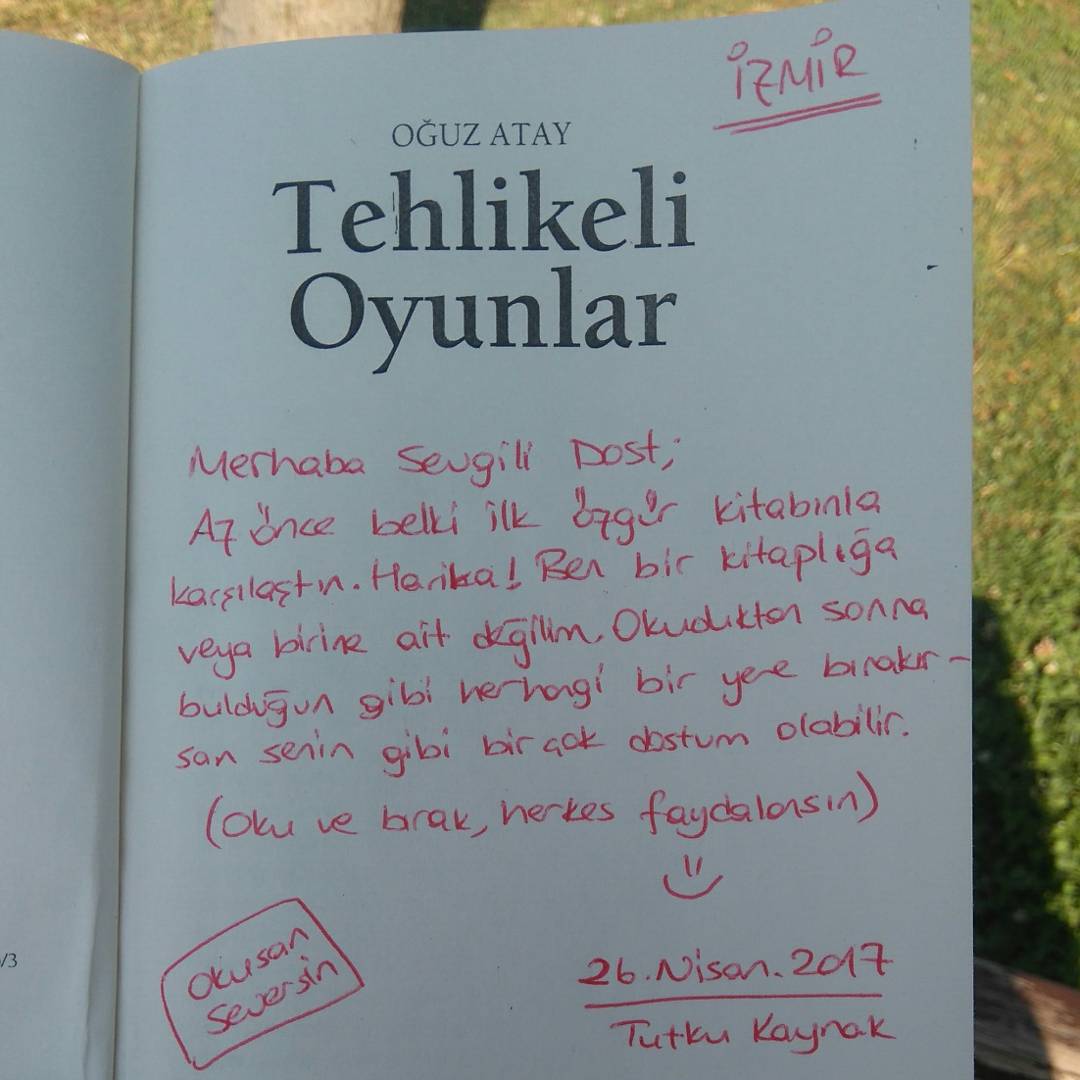 İZMİR
OĞUZ ATAY
Tehlikeli
Oyunlar
Merhaba Sevgili Dost;
Az önce belki ilk özgür kitabınla
karşılaştın. Harika! Ben bir kitaplığa
veya birine ait değilim. Okuduktan sonra
bulduğun gibi herhangi bir yere bırakır-
san senin gibi birçok dostum olabilir.
(Oku ve bırak, herkes faydalansın)
Okusan
Seversin
26.Nisan.2017
Tutku Kaynak
/3